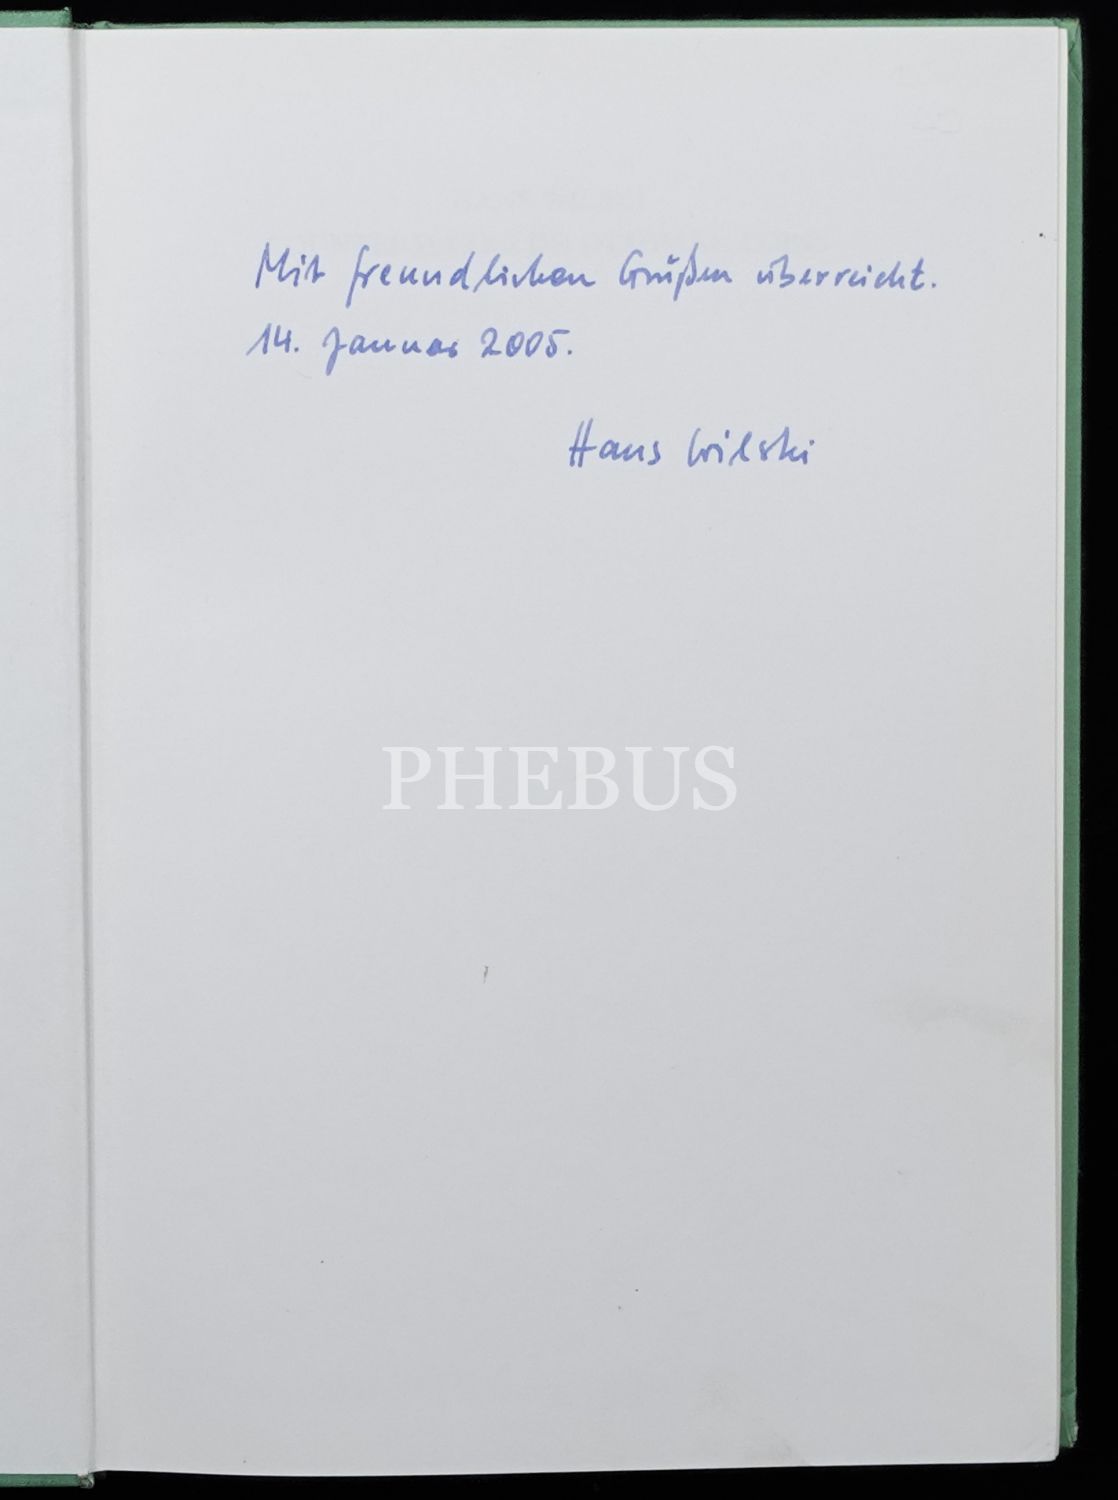 Mit freundlichen Grüßen überreicht.
14. Januar 2005.
Hans Wilski
PHEBUS